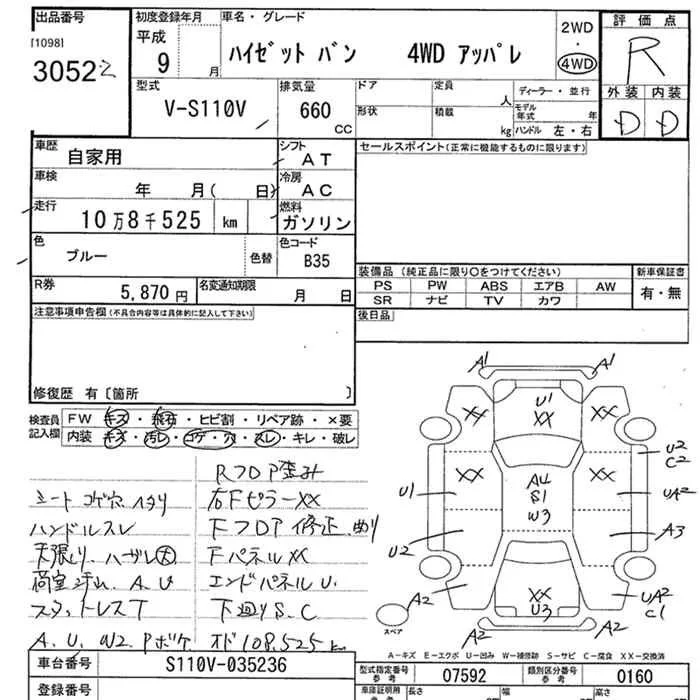 出品番号 初度登録年月 車名・グレード 評価点
[1098] 平成 2WD
30522 9 月 ハイゼット バン 4WD アッパレ ・ R
4WD
型式 排気量 ドア 定員 ディーラー・並行 外装 内装
V-S110V 660 人 モデル年式 年 D D
CC 形状 積載 kg ハンドル 左・右
車歴 自家用 シフト AT セールスポイント(正常に機能するものに限ります)
車検 年 月( 日) 冷房 AC
走行 10万8千525 km 燃料 ガソリン
色 ブルー 色替 色コード B35
装備品(純正品に限り○をつけてください) 新車保証書
R券 5,870円 名変通知期限 月 日 PS PW ABS エアB AW 有・無
SR ナビ TV カワ
注意事項申告欄(不具合内容等は具体的に記入して下さい) 後日品
修復歴 有〔箇所 〕
検査員記入欄 FW キズ・飛石・ヒビ割・リペア跡・×要
内装 キズ・汚レ・コゲ・穴・スレ・キレ・破レ
Rフロア歪み
シート コゲ穴 ヘタリ 右FピラーXX
ハンドルスレ Fフロア修正
天張り ハガレ大 FパネルXX
荷室汚れ A.U エンドパネルU.
スタットレスT 下廻りS.C
A.U.W2.Pボケ オド108,525km
A1 A1
U1
XX XX XX
XX A4 XX U2
S1 C2
U1 W3 UA2
U2 A3
XX
A2 U3 UA2
C1
A2 A2
スペア
A-キズ E-エクボ U-凹み W-補修跡 S-サビ C-腐食 XX-交換済
車台番号 S110V-035236 型式指定番号 参考 07592 類別区分番号 参考 0160
登録番号 車庫証明用 参考 長さ 幅 高さ